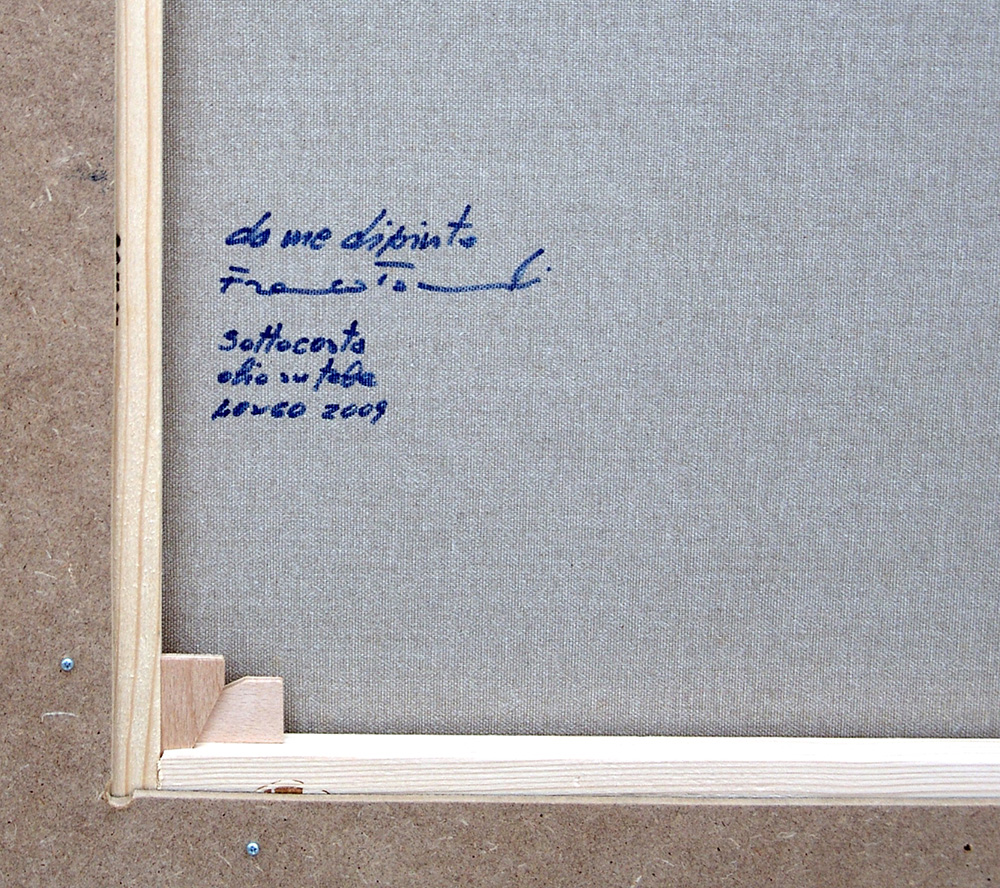 da me dipinto
Franco
Sottocosta
olio su tela
2009